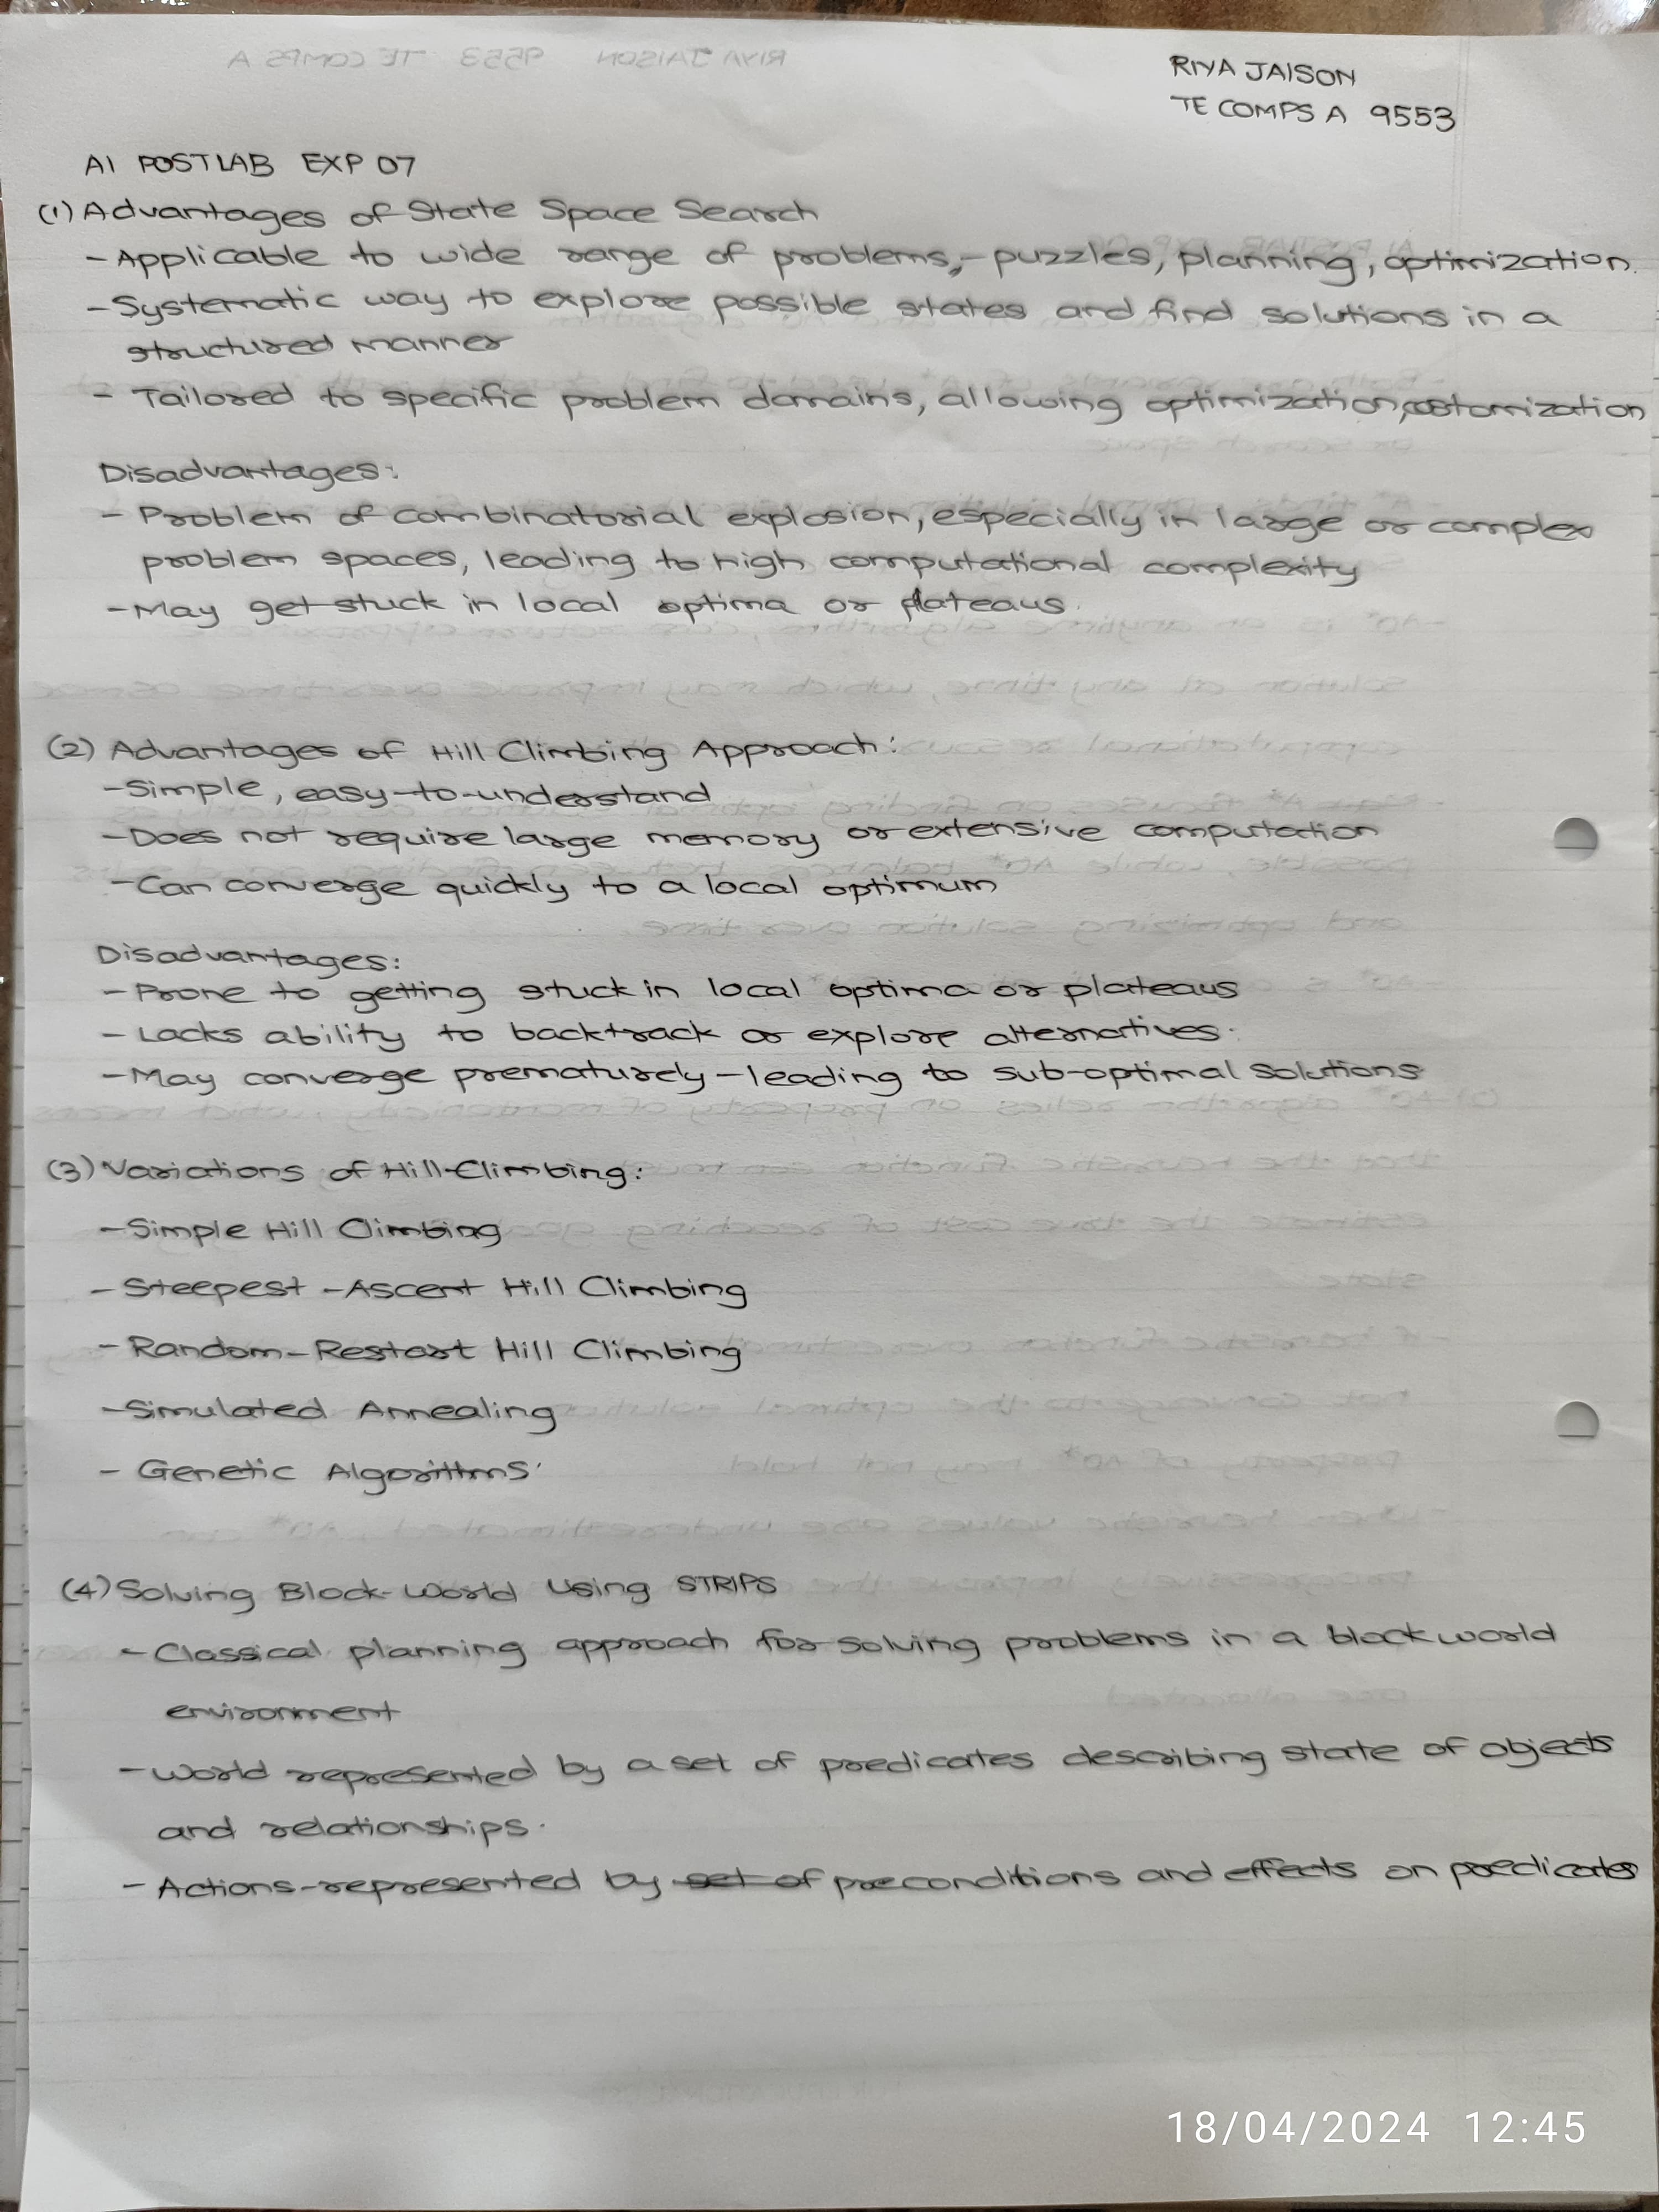 RIYA JAISON
TE COMPS A 9553
AI POSTLAB EXP 07
(1) Advantages of State Space Search
- Applicable to wide range of problems,- puzzles, planning, optimization.
- Systematic way to explore possible states and find solutions in a
structured manner
- Tailored to specific problem domains, allowing optimization, customization
Disadvantages:
- Problem of combinatorial explosion, especially in large or complex
problem spaces, leading to high computational complexity
- May get stuck in local optima or plateaus.
(2) Advantages of Hill Climbing Approach:
- Simple, easy-to-understand
- Does not require large memory or extensive computation
- Can converge quickly to a local optimum
Disadvantages:
- Prone to getting stuck in local optima or plateaus
- Lacks ability to backtrack or explore alternatives.
- May converge prematurely - leading to sub-optimal solutions
(3) Variations of Hill-Climbing:
- Simple Hill Climbing
- Steepest - Ascent Hill Climbing
- Random-Restart Hill Climbing
- Simulated Annealing
- Genetic Algorithms
(4) Solving Block-World Using STRIPS
- Classical planning approach for solving problems in a block world
environment
- World represented by a set of predicates describing state of objects
and relationships.
- Actions-represented by set of preconditions and effects on predicates
18/04/2024 12:45